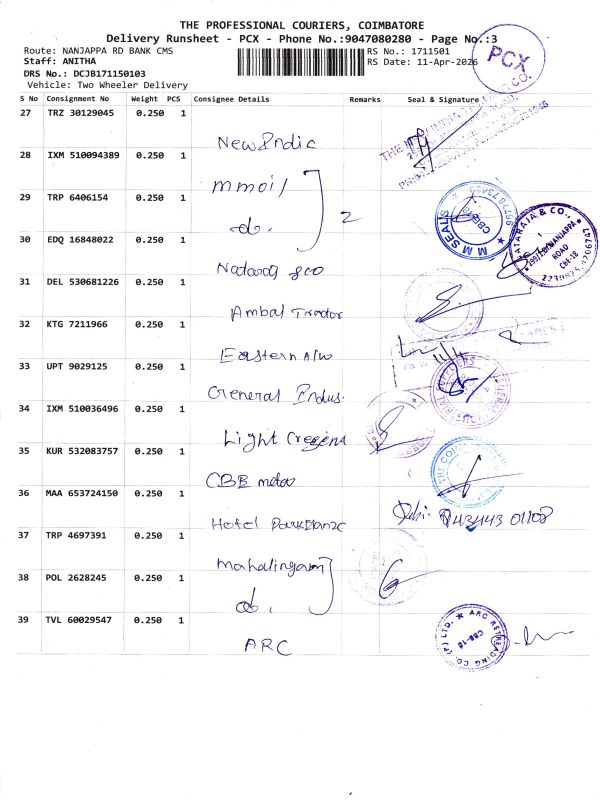 THE PROFESSIONAL COURIERS, COIMBATORE
Delivery Runsheet - PCX - Phone No.:9047080280 - Page No.:3
Route: NANJAPPA RD BANK CMS RS No.: 1711501
Staff: ANITHA RS Date: 11-Apr-2026
DRS No.: DCJB171150103
Vehicle: Two Wheeler Delivery
PCX
CO.
S No Consignment No Weight PCS Consignee Details Remarks Seal & Signature
27 TRZ 30129045 0.250 1 New Indic
28 IXM 510094389 0.250 1 mmoil
29 TRP 6406154 0.250 1 do. 2
M M SEALS
30 EDQ 16848022 0.250 1
NATARAJA & CO.,
NANJAPPA
ROAD
CBE-18
31 DEL 530681226 0.250 1 Ambal Trador
32 KTG 7211966 0.250 1 Eastern A/w
11/4
33 UPT 9029125 0.250 1 General Indus.
34 IXM 510036496 0.250 1 Light
35 KUR 532083757 0.250 1 CBB
36 MAA 653724150 0.250 1 Hotel
37 TRP 4697391 0.250 1 mahalingam
38 POL 2628245 0.250 1 do.
39 TVL 60029547 0.250 1 ARC
ARC RETREADING CO. (P) LTD.
CBE-18